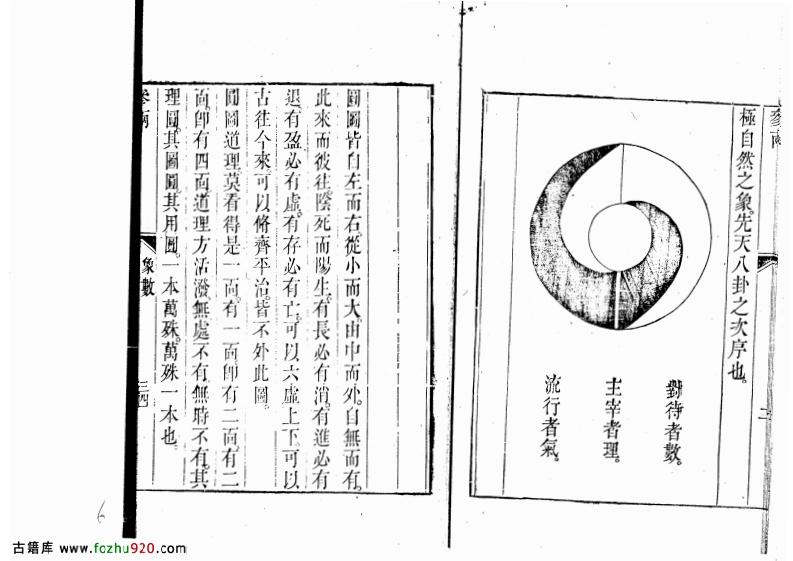 極自然之象。先天八卦之次序也。
對待者數。
主宰者理。
流行者氣。
二
圓圖皆自左而右。從小而大。由中而外。自無而有。
此來而彼往。陰死而陽生。有長必有消。有進必有
退。有盈必有虛。有存必有亡。可以六虛上下。可以
古往今來。可以脩齊平治。皆不外此圖。
圓圖道理。莫看得是一面。有一面。卽有二面。有二
面。卽有四面。道理方活潑。無處不有。無時不有。其
理圓。其圖圓。其用圓。一本萬殊。萬殊一本也。
象數
三四
6
古籍库 www.fozhu920.com